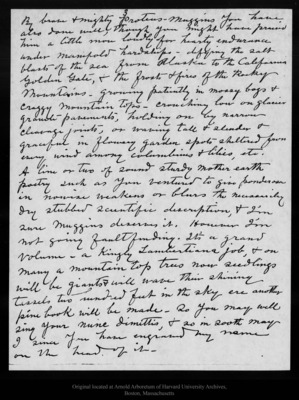 My brave & mighty Proteus-Muggins you have
also done well though you might have praised
him a little more loudly for hearty endurance
under manifold hardships - defying the salt
blasts of the sea from Alaska to the California
Golden Gate, & the frost & fires of the Rocky
Mountains - growing patiently in mossy bogs &
craggy mountain tops - crouching low on glacier
granite pavements, holding on by narrow
cleavage joints, or waving tall & slender &
graceful in flowery garden spots sheltered from
every wind among columbines & lilies, etc.
A line or two of sound sturdy mother earth
poetry such as you ventured to give ponderosa
in nowise weakens or blurs the necessarily
dry stubbed scientific description, & I'm
sure Muggins deserves it. However I'm
not going faultfinding. Its a grand
volume - a kingly Lambertiana job & on
many a mountain top trees now seedlings
will be giants & will wave their shining
tassels two hundred feet in the sky ere another
pine book will be made. So you may well
sing your nunc dimittis, & so in sooth may
I since you have engraved my name
on the head of it -
Original located at Arnold Arboretum of Harvard University Archives,
Boston, Massachusetts